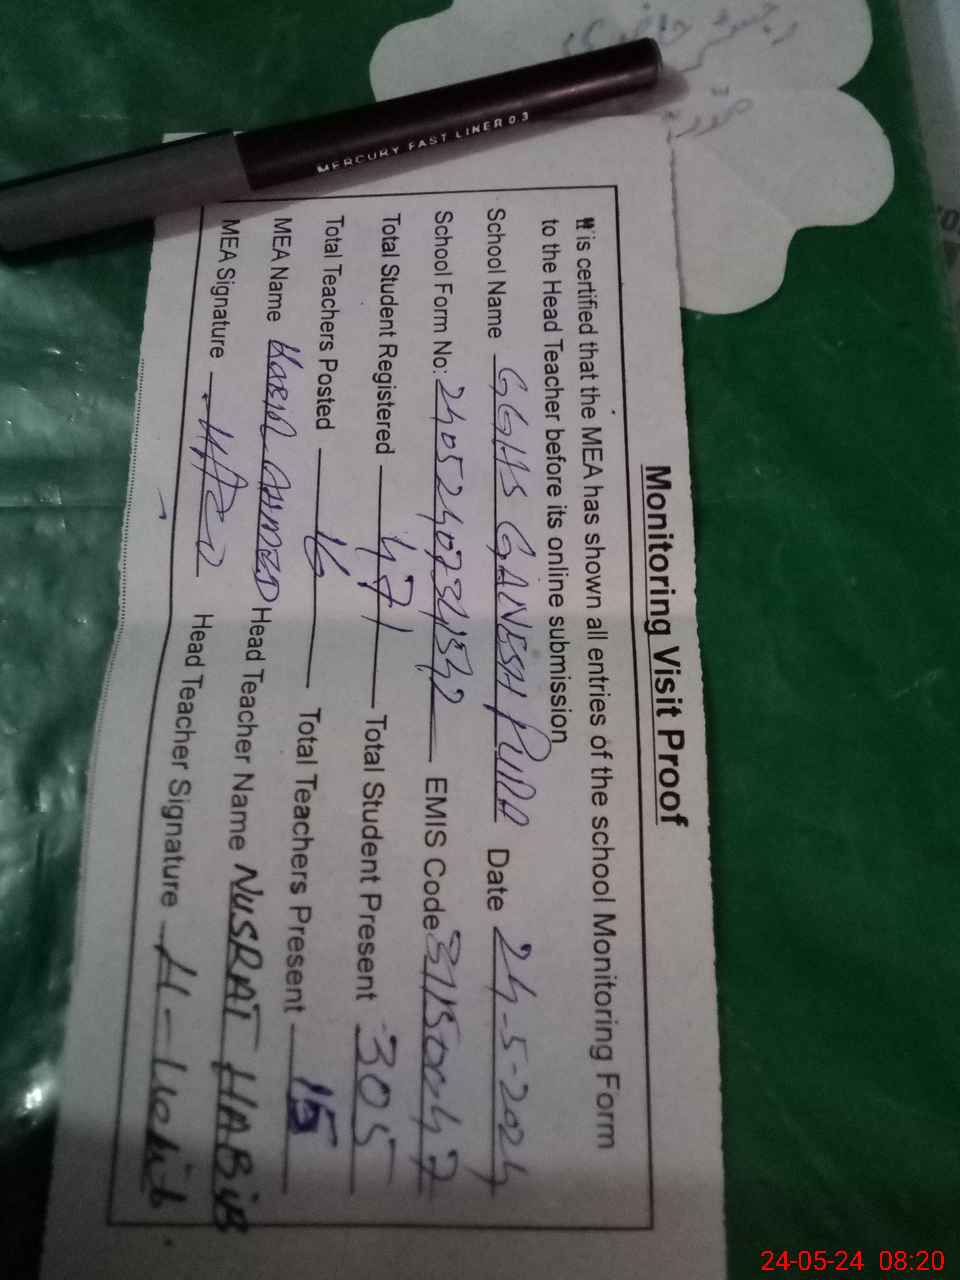 MERCURY FAST LINER 0.3
Monitoring Visit Proof
It is certified that the MEA has shown all entries of the school Monitoring Form
to the Head Teacher before its online submission
School Name GGHS GANESH PURA Date 24-5-2024
School Form No: EMIS Code
Total Student Registered 471 Total Student Present 305
Total Teachers Posted 16 Total Teachers Present 15
MEA Name KABIR AHMED Head Teacher Name NUSRAT HABIB
MEA Signature Head Teacher Signature H-Habib
24-05-24 08:20